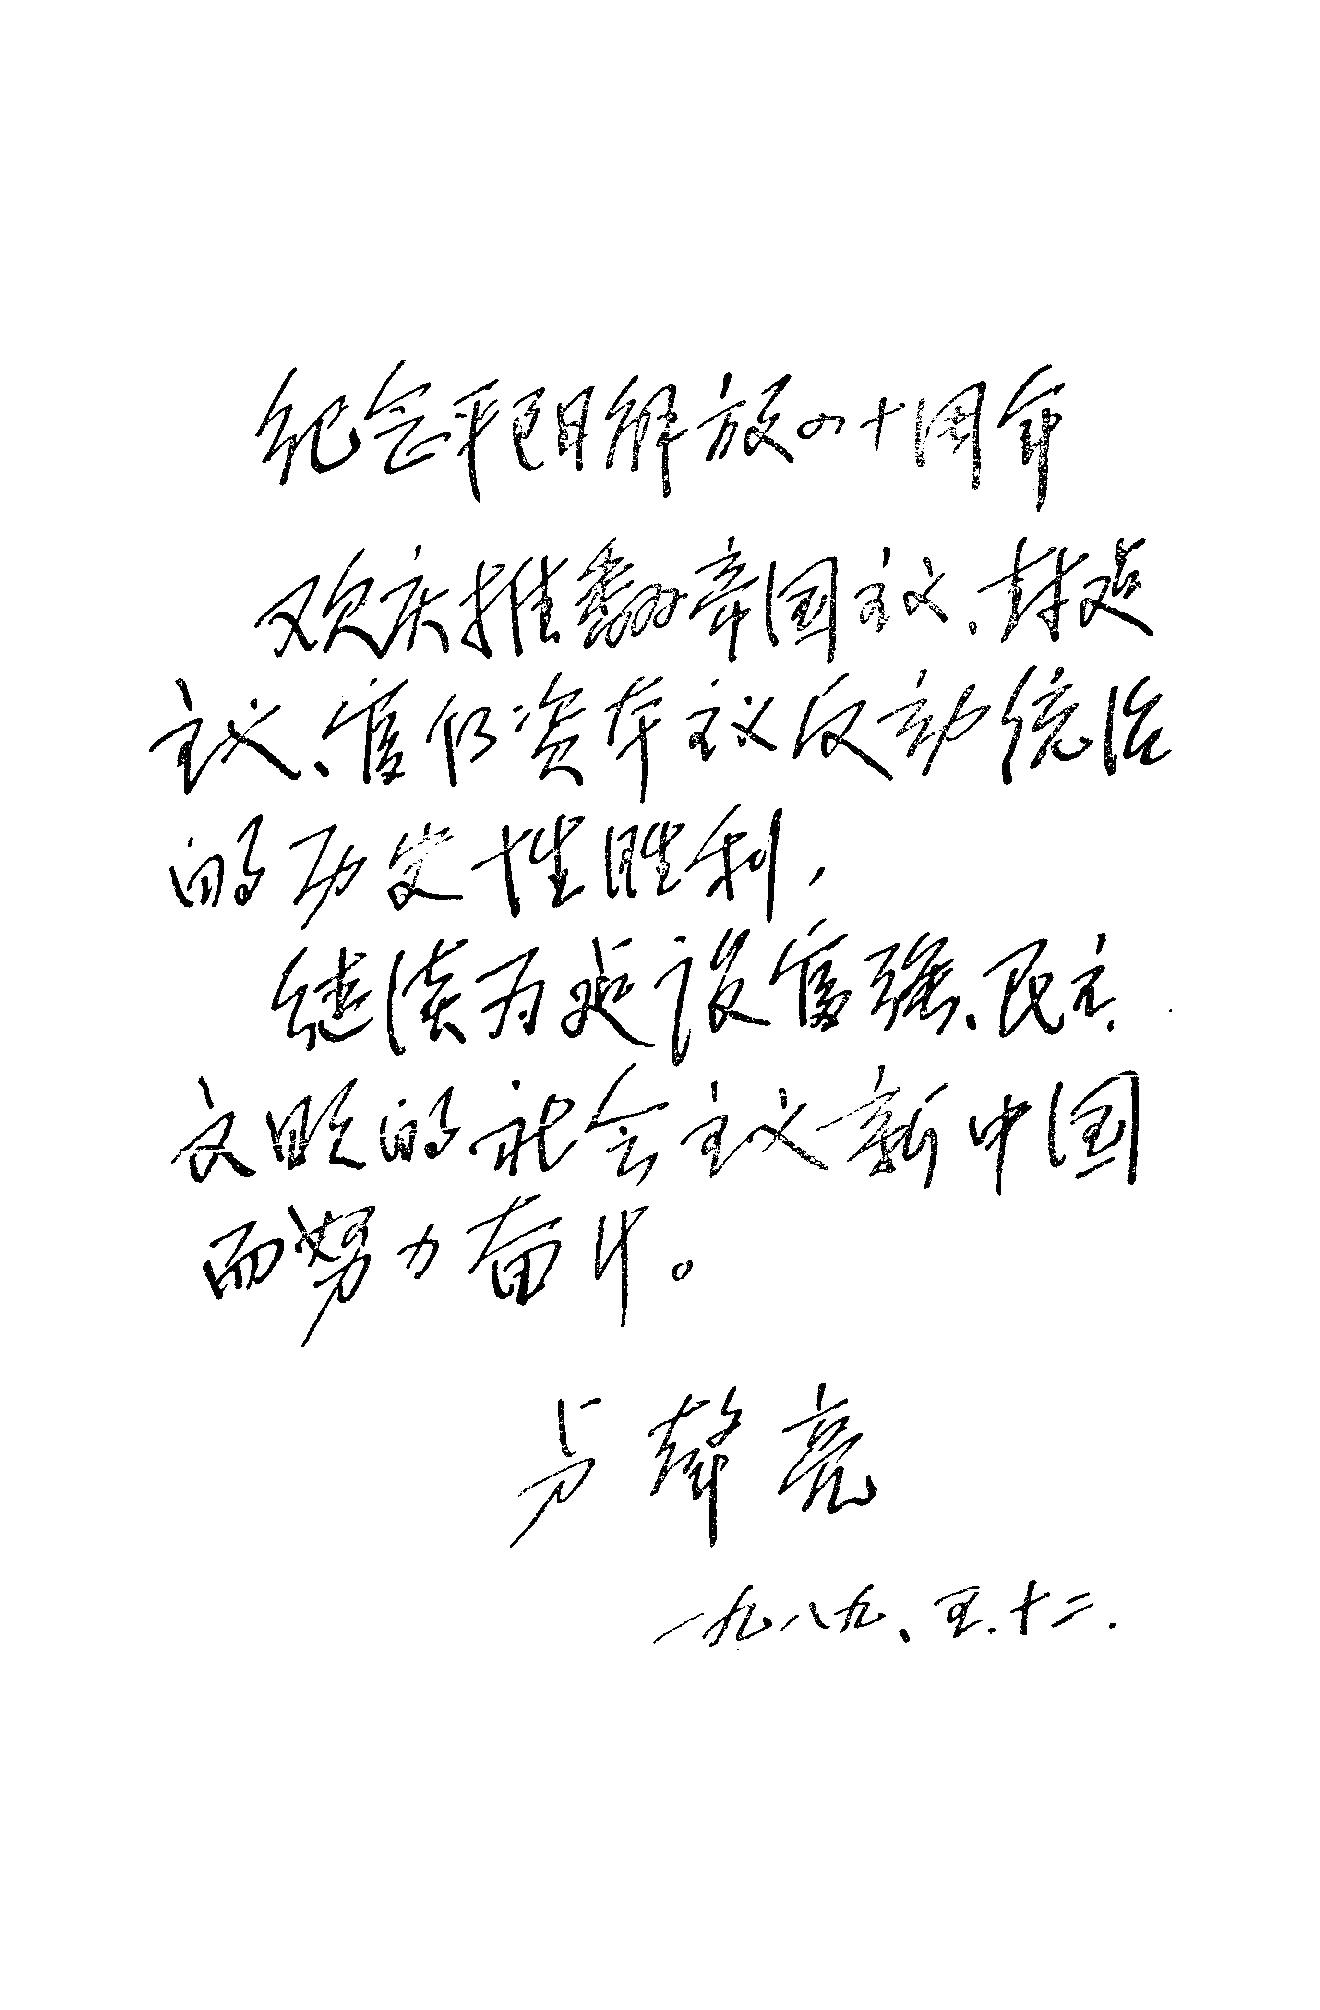 纪念平阳解放四十周年
欢庆推翻帝国主义、封建
主义、官僚资本主义反动统治
的历史性胜利，
继续为建设富强、民主、
文明的社会主义新中国
而努力奋斗。
卢聲亮
一九八九、五.十二.